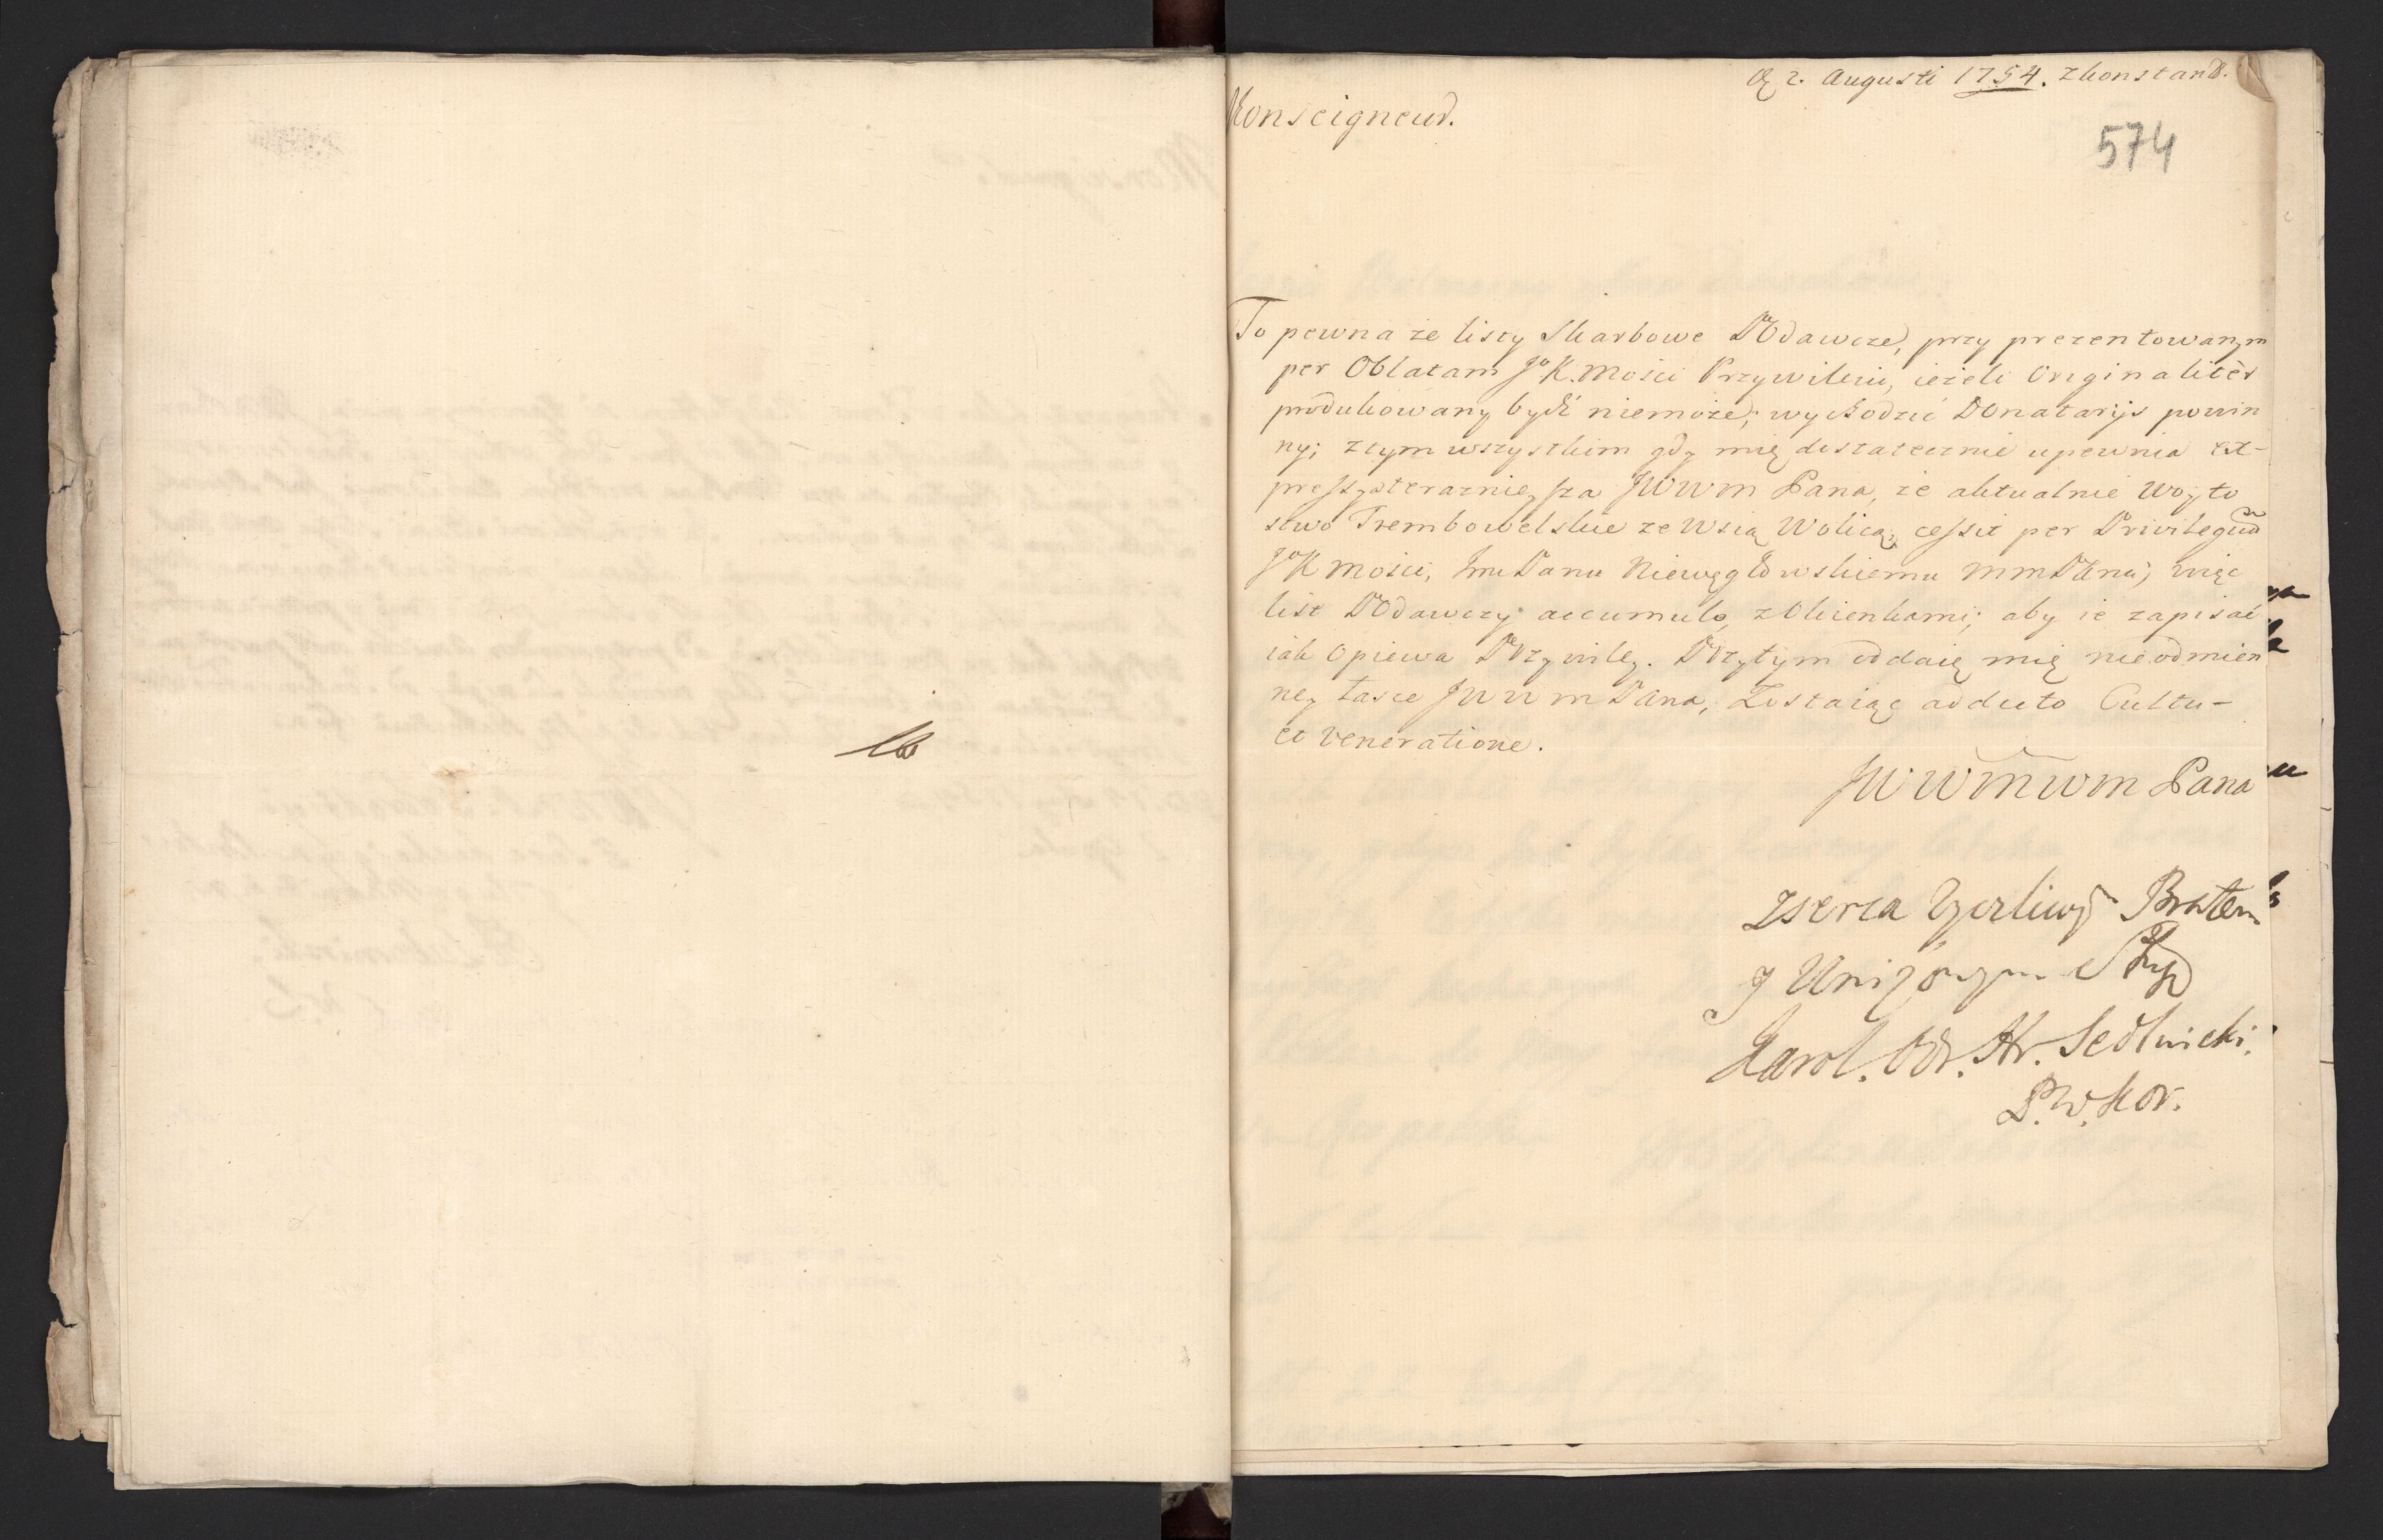 d. 2. Augusti 1754. z Konstant.
574
Monseigneur.
To pewna że listy Skarbowe Podawcze, przy prezentowanym
per Oblatam JoK.Mości Przywileiu, ieżeli Originalitèr
produkowany bydź niemoże; wychodzić Donatarijs powin
ny; z tym wszystkim gdy mię dostatecznie upewnia ex-
pressya teraznieysza JWWM Pana, że aktualnie Woyto
stwo Trembowelskie ze Wsią Wolicą, cessit per Privilegium
JoK Mości, Jmć Panu Niewęgłowskiemu MM Panu; więc
list Podawczy accumulo, z Okienkami; aby ie zapisać
iak opiewa Przywiley. Przytym oddaię mię nieodmien
ney łasce JWWM Pana, Zostaiąc ad cuto Cultu-
et veneratione.
JWWMWM Pana
z serca Życzliwym Bratem
y Uniżonym Sługą
Karol. Odr. Hr. Sedlnicki.
P.W.Kor.